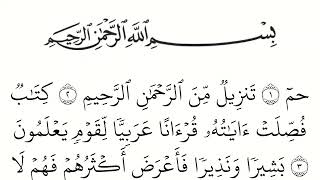 بِسْمِ ٱللَّهِ ٱلرَّحْمَٰنِ ٱلرَّحِيمِ
حمٓ ١ تَنزِيلٌ مِّنَ ٱلرَّحْمَٰنِ ٱلرَّحِيمِ ٢ كِتَٰبٌ
فُصِّلَتْ ءَايَٰتُهُۥ قُرْءَانًا عَرَبِيًّا لِّقَوْمٍ يَعْلَمُونَ
٣ بَشِيرًا وَنَذِيرًا فَأَعْرَضَ أَكْثَرُهُمْ فَهُمْ لَا